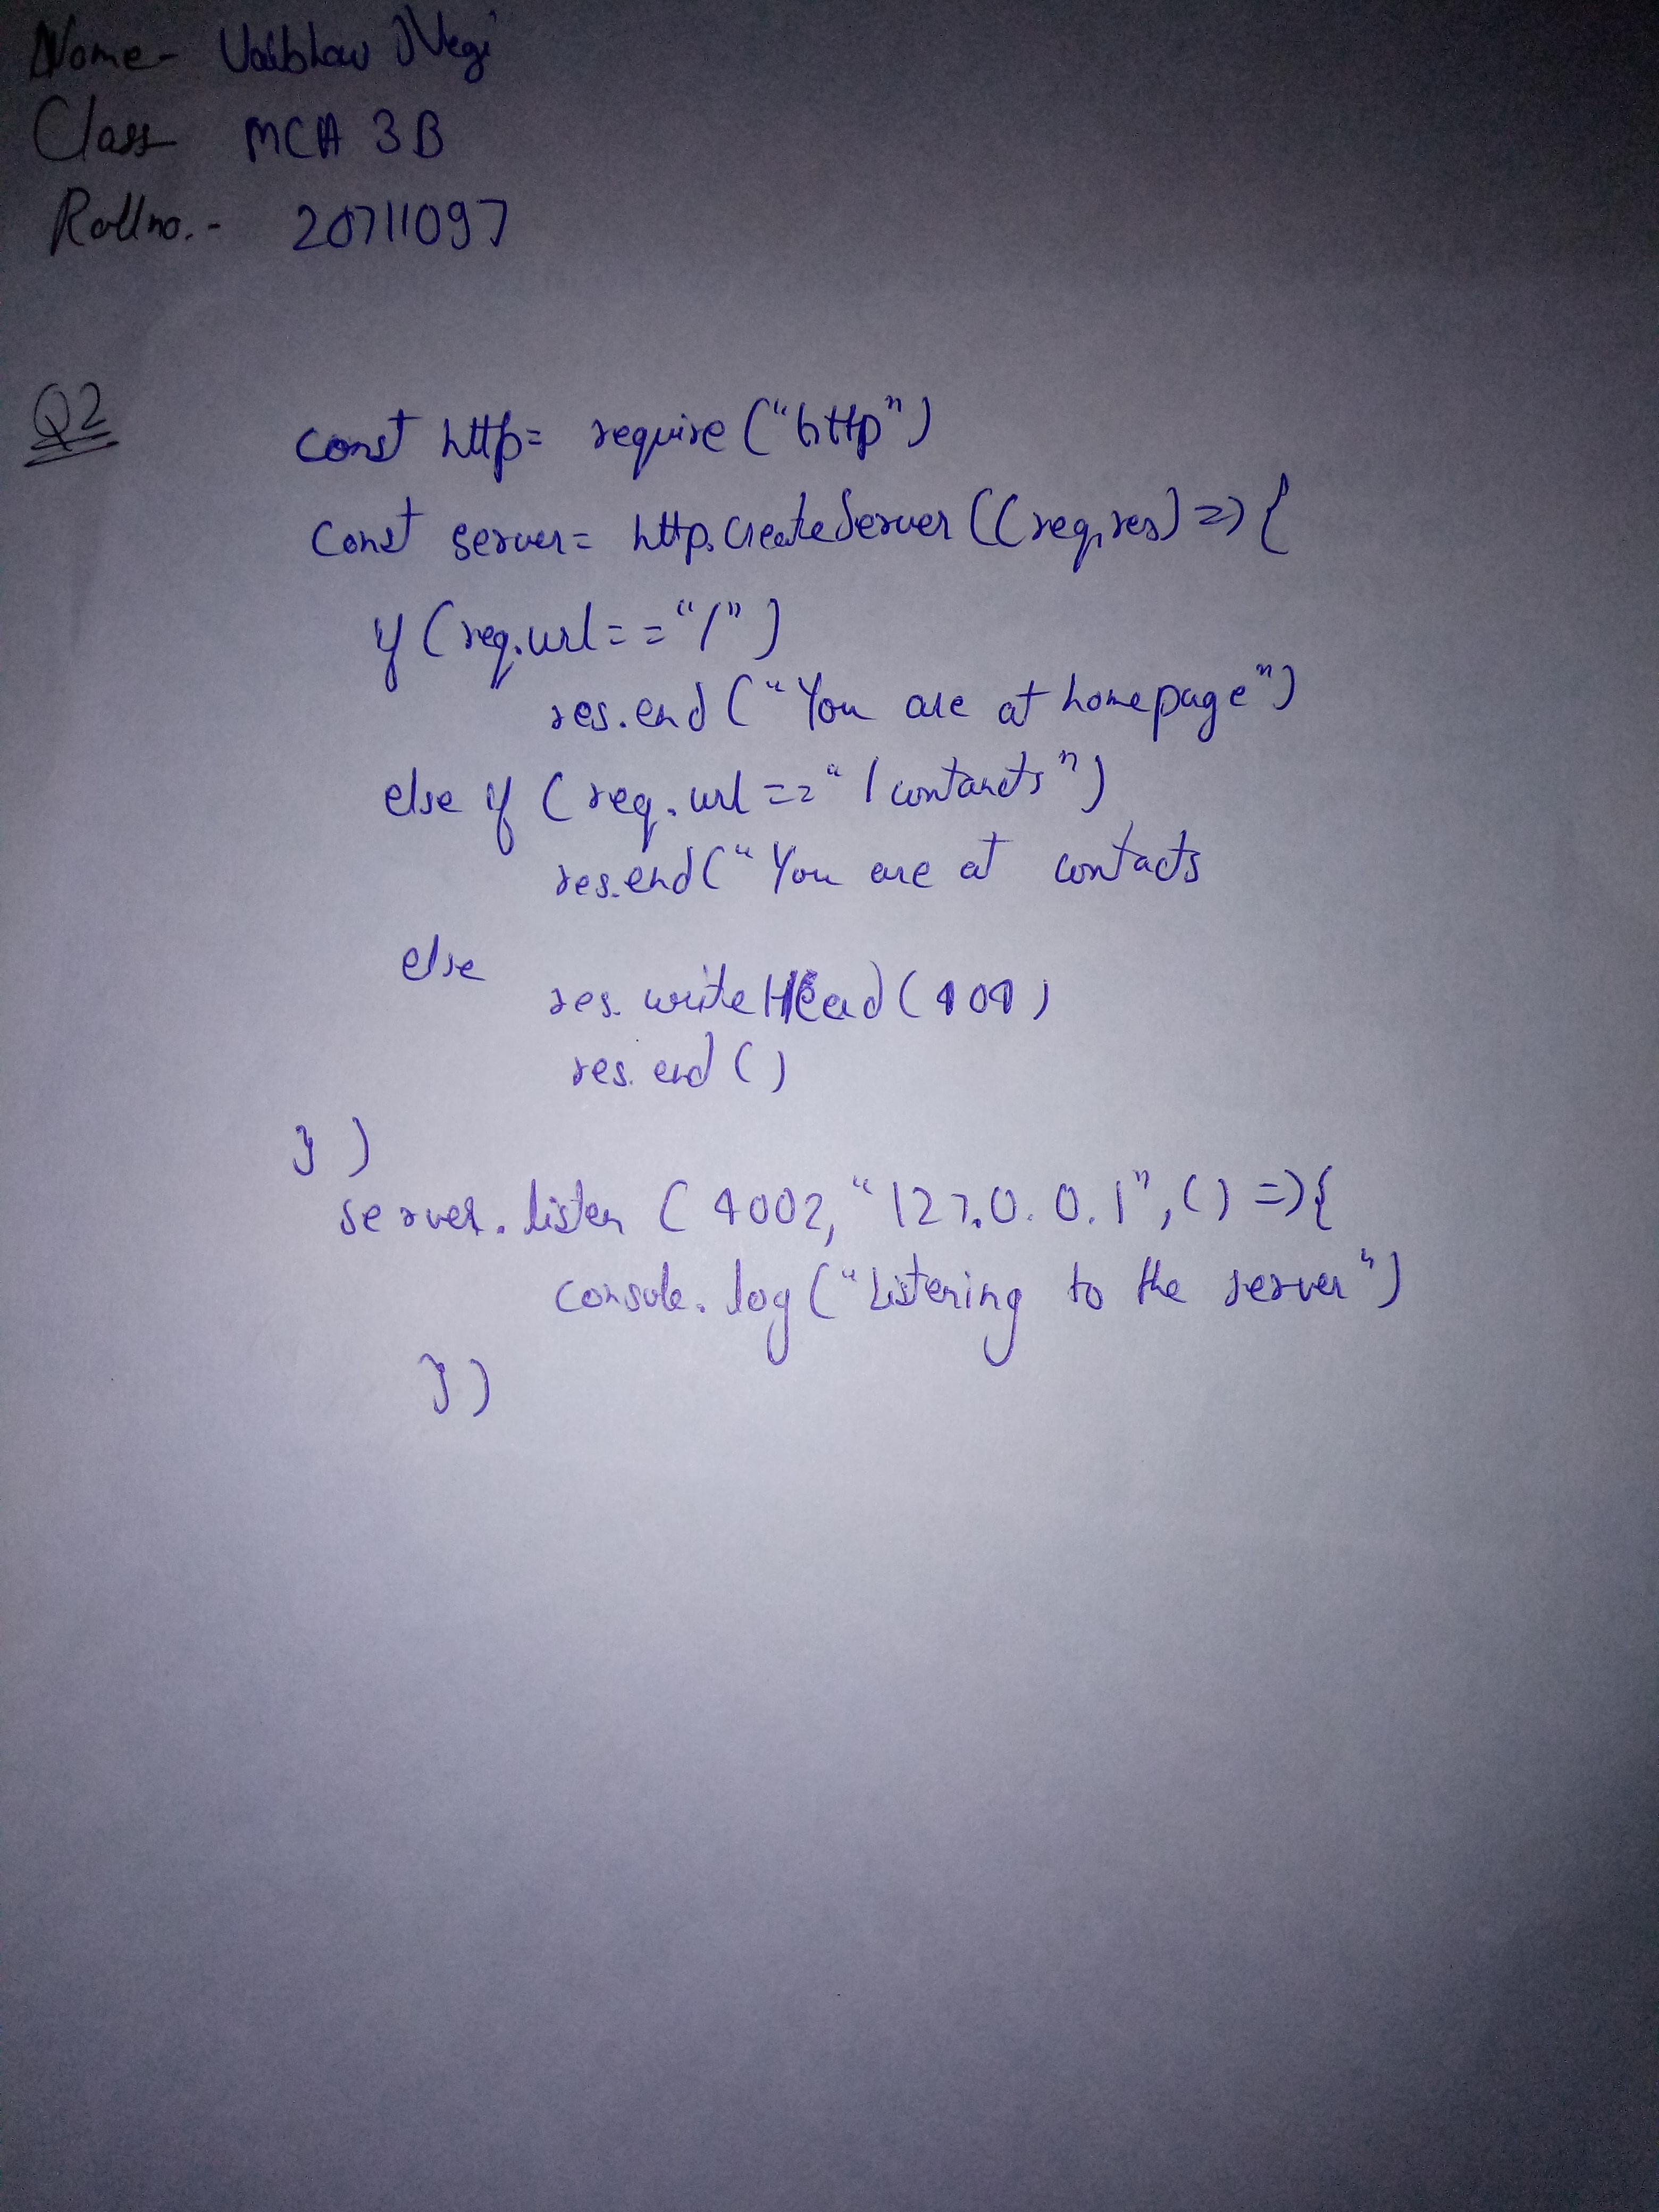 Name - Vaibhav Negi
Class MCA 3B
Rollno. - 20711097
Q2
const http= require ("http")
const server= http.createServer((req,res)=>{
if (req.url=="/")
res.end ("You are at homepage")
else if (req.url=="/contancts")
res.end("You are at contacts
else
res.writeHead(404)
res.end()
})
server.listen (4002,"127.0.0.1",()=>{
console.log("Listening to the server")
})